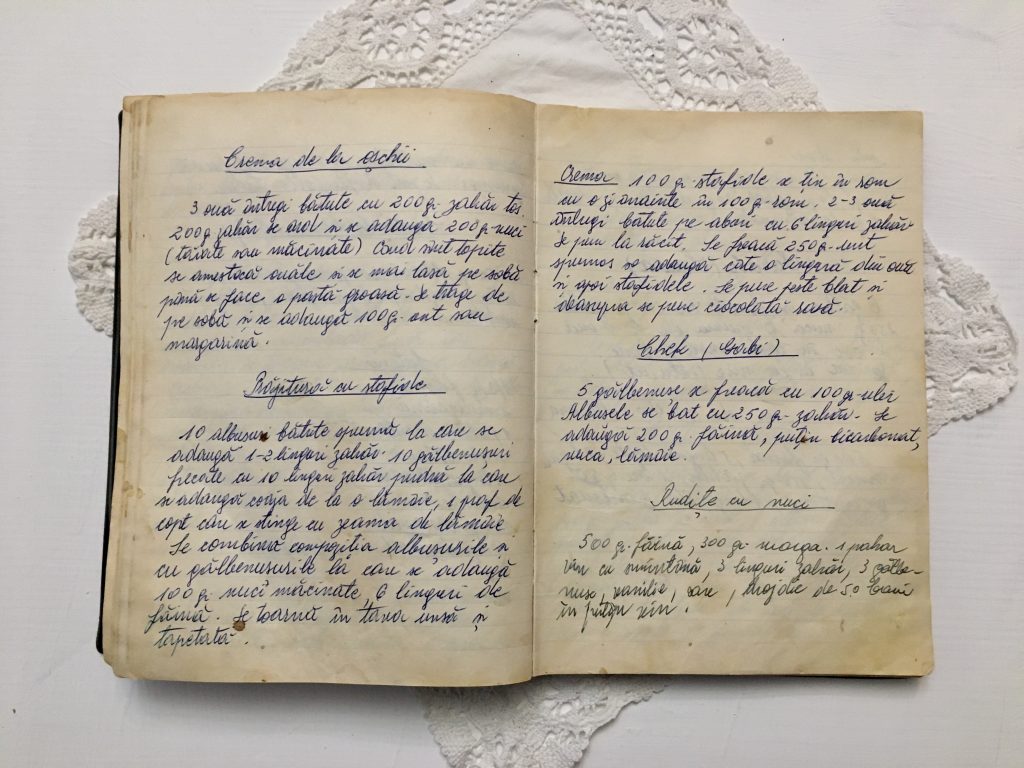 Crema de la Eschii
3 ouă întregi bătute cu 200 gr. zahăr tos
200 g zahăr se ard și se adaugă 200 gr. nuci
(tăiate sau măcinate) Când sunt topite
se amestică ouăle și se mai lasă pe sobă
până se face o pastă groasă. Se trage de
pe sobă și se adaugă 100 gr. unt sau
margarină.
Prăjitură cu stafide
10 albușuri bătute spumă la care se
adaugă 1-2 linguri zahăr. 10 gălbenușuri
frecate cu 10 linguri zahăr pudră la care
se adaugă coaja de la o lămâie, 1 praf de
copt care se stinge cu zeama de lămâie
Se combină compoziția albușurile și
cu gălbenușurile la care se adaugă
100 gr. nuci măcinate, 6 linguri de
făină. Se toarnă în tava unsă și
tapetată.
Crema 100 gr. stafide se țin în rom
cu o zi înainte în 100 gr. rom. 2-3 ouă
întregi bătute pe aburi cu 6 linguri zahăr
Se pun la răcit. Se freacă 250 gr. unt
spumos se adaugă câte o lingură din ouă
și apoi stafidele. Se pune peste blat și
deasupra se pune ciocolată rasă.
Chek (Gabi)
5 gălbenușe se freacă cu 100 gr. ulei
Albușele se bat cu 250 gr. zahăr. Se
adaugă 200 gr. făină, puțin bicarbonat,
nuca, lămâie.
cu nuci
500 gr. făină, 300 gr. marga. 1 pahar
vin cu smântână, 3 linguri zahăr, 3 gălbe-
nușe, vanilie, sare, drojdie de 50 bani
în puțin vin.